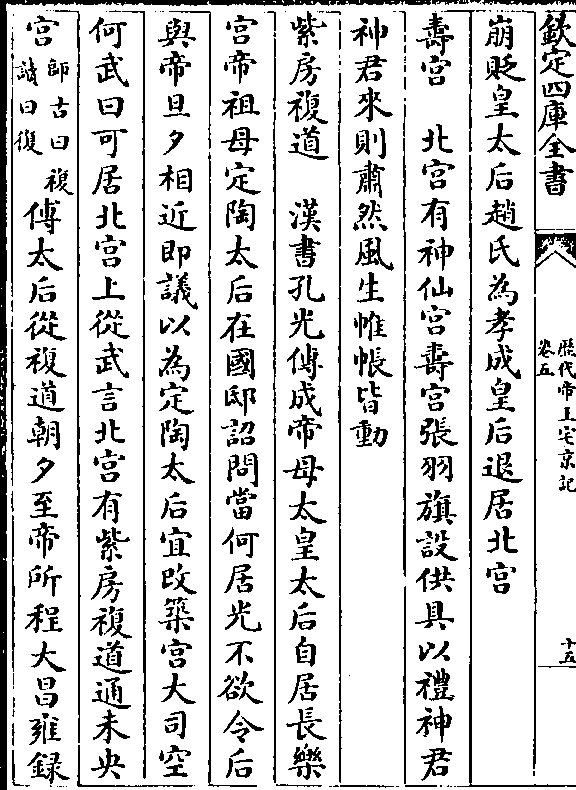 欽定四庫全書
歷代帝王宅京記
卷五
十五
崩貶皇太后趙氏為孝成皇后退居北宫
壽宫　北宫有神仙宫壽宫張羽旗設供具以禮神君
神君來則肅然風生帷帳皆動
紫房複道　漢書孔光傳成帝母太皇太后自居長樂
宫帝祖母定陶太后在國邸詔問當何居光不欲令后
與帝旦夕相近即議以為定陶太后宜改築宫大司空
何武曰可居北宫上從武言北宫有紫房複道通未央
宫師古曰複讀曰復傅太后從複道朝夕至帝所程大昌雍録